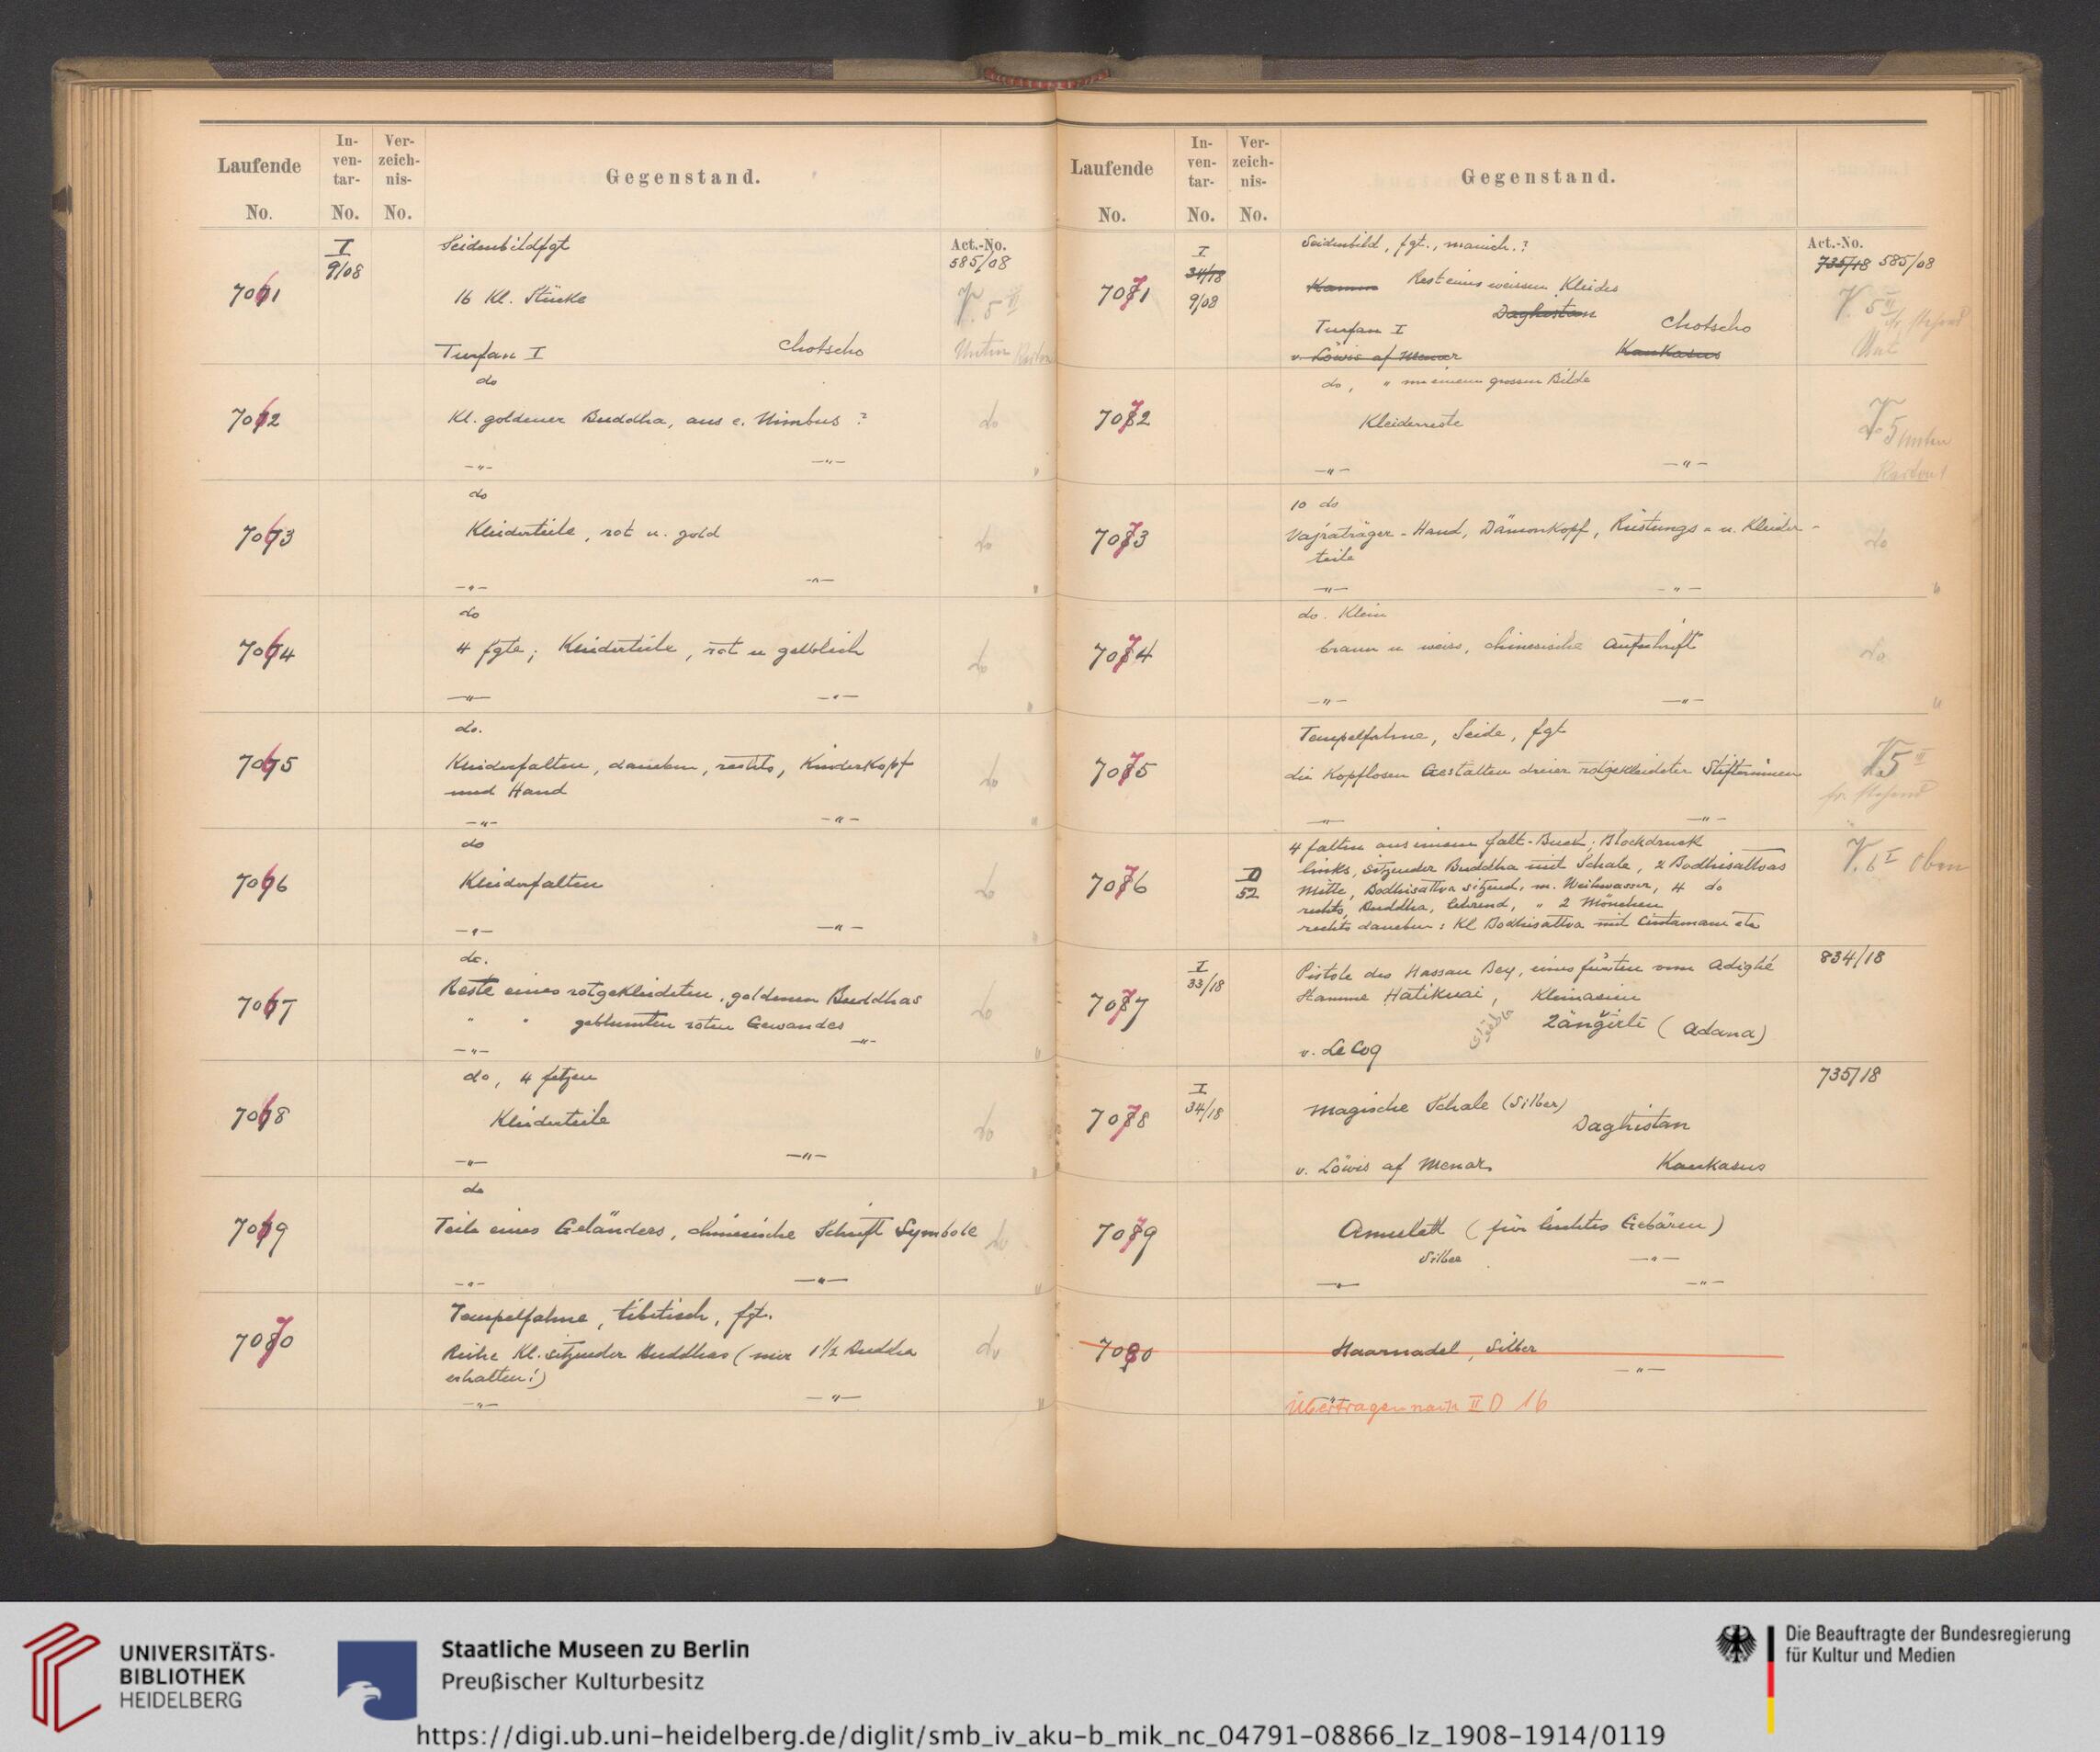 Laufende No.
In-ven-tar- No.
Ver-zeich-nis- No.
Gegenstand.
I 9/08
Seidenbildfgt
Act.-No.
585/08
7061
16 Kl. Stücke
V. 5 II
Turfan I Chotscho
Unten Karton
do
7062
Kl. goldener Buddha, aus e. Nimbus ?
do
-"- -"-
do
7063
Kleiderteile, rot u. gold
do
-"- -"-
do
7064
4 fgte; Kleiderteile, rot u gelblich
do
-"- -"-
do.
7065
Kleiderfalten, daneben, rechts, Kinderkopf
und Hand
do
-"- -"-
do
7066
Kleiderfalten
do
-"- -"-
do.
7067
Reste eines rotgekleideten, goldenen Buddhas
" " geblümten roten Gewandes
do
-"- -"-
do, 4 fetzen
7068
Kleiderteile
do
-"- -"-
do
7069
Teile eines Geländers, chinesische Schrift Symbole
do
-"- -"-
Tempelfahne, tibetisch, fgt.
7070
Reihe Kl. sitzender Buddhas (nur 1½ Buddha
erhalten!)
do
-"- -"-
Laufende No.
In-ven-tar- No.
Ver-zeich-nis- No.
Gegenstand.
I 34/18 9/08
Seidenbild, fgt., manich.?
Act.-No.
735/18 585/08
7071
Rest eines weissen Kleides
V. 5 II
Daghistan
Turfan I Chotscho
v. Löwis af Menar Kaukasus
do, " von einem grossen Bilde
7072
Kleiderreste
V 5 unten
Karton 1
-"- -"-
10 do
7073
Vajraträger-Hand, Dämonkopf, Rüstungs- u. Kleider-
teile
do
-"- -"-
do. Klein
7074
braun u weiss, chinesische Aufschrift
do
-"- -"-
Tempelfahne, Seide, fgt
7075
die Kopflosen Gestalten dreier rotgekleideter Stifterinnen
V5 II
-"- -"-
D 52
4 falten aus einem falt-Buch; Blockdruck
7076
links, sitzender Buddha mit Schale, 2 Bodhisattvas
Mitte, Bodhisattva sitzend, m. Weihwasser, 4 do
rechts, Buddha, lehrend, " 2 Mönchen
rechts daneben: Kl Bodhisattva mit Cintamani etc
V. 6 I oben
I 33/18
Pistole des Hassan Bey, eines fürsten vom Adighé
834/18
7077
Stamme Hatikuai, Kleinasien
Zänğirli (Adana)
v. LeCoq
I 34/18
735/18
7078
Magische Schale (Silber)
Daghistan
v. Löwis af Menar Kaukasus
7079
Amulett (für leichtes Gebären)
Silber -"-
-"- -"-
7080
Haarnadel, Silber
-"-
Übertragen nach II D 16
UNIVERSITÄTS-
BIBLIOTHEK
HEIDELBERG
Staatliche Museen zu Berlin
Preußischer Kulturbesitz
Die Beauftragte der Bundesregierung
für Kultur und Medien
https://digi.ub.uni-heidelberg.de/diglit/smb_iv_aku-b_mik_nc_04791-08866_lz_1908-1914/0119